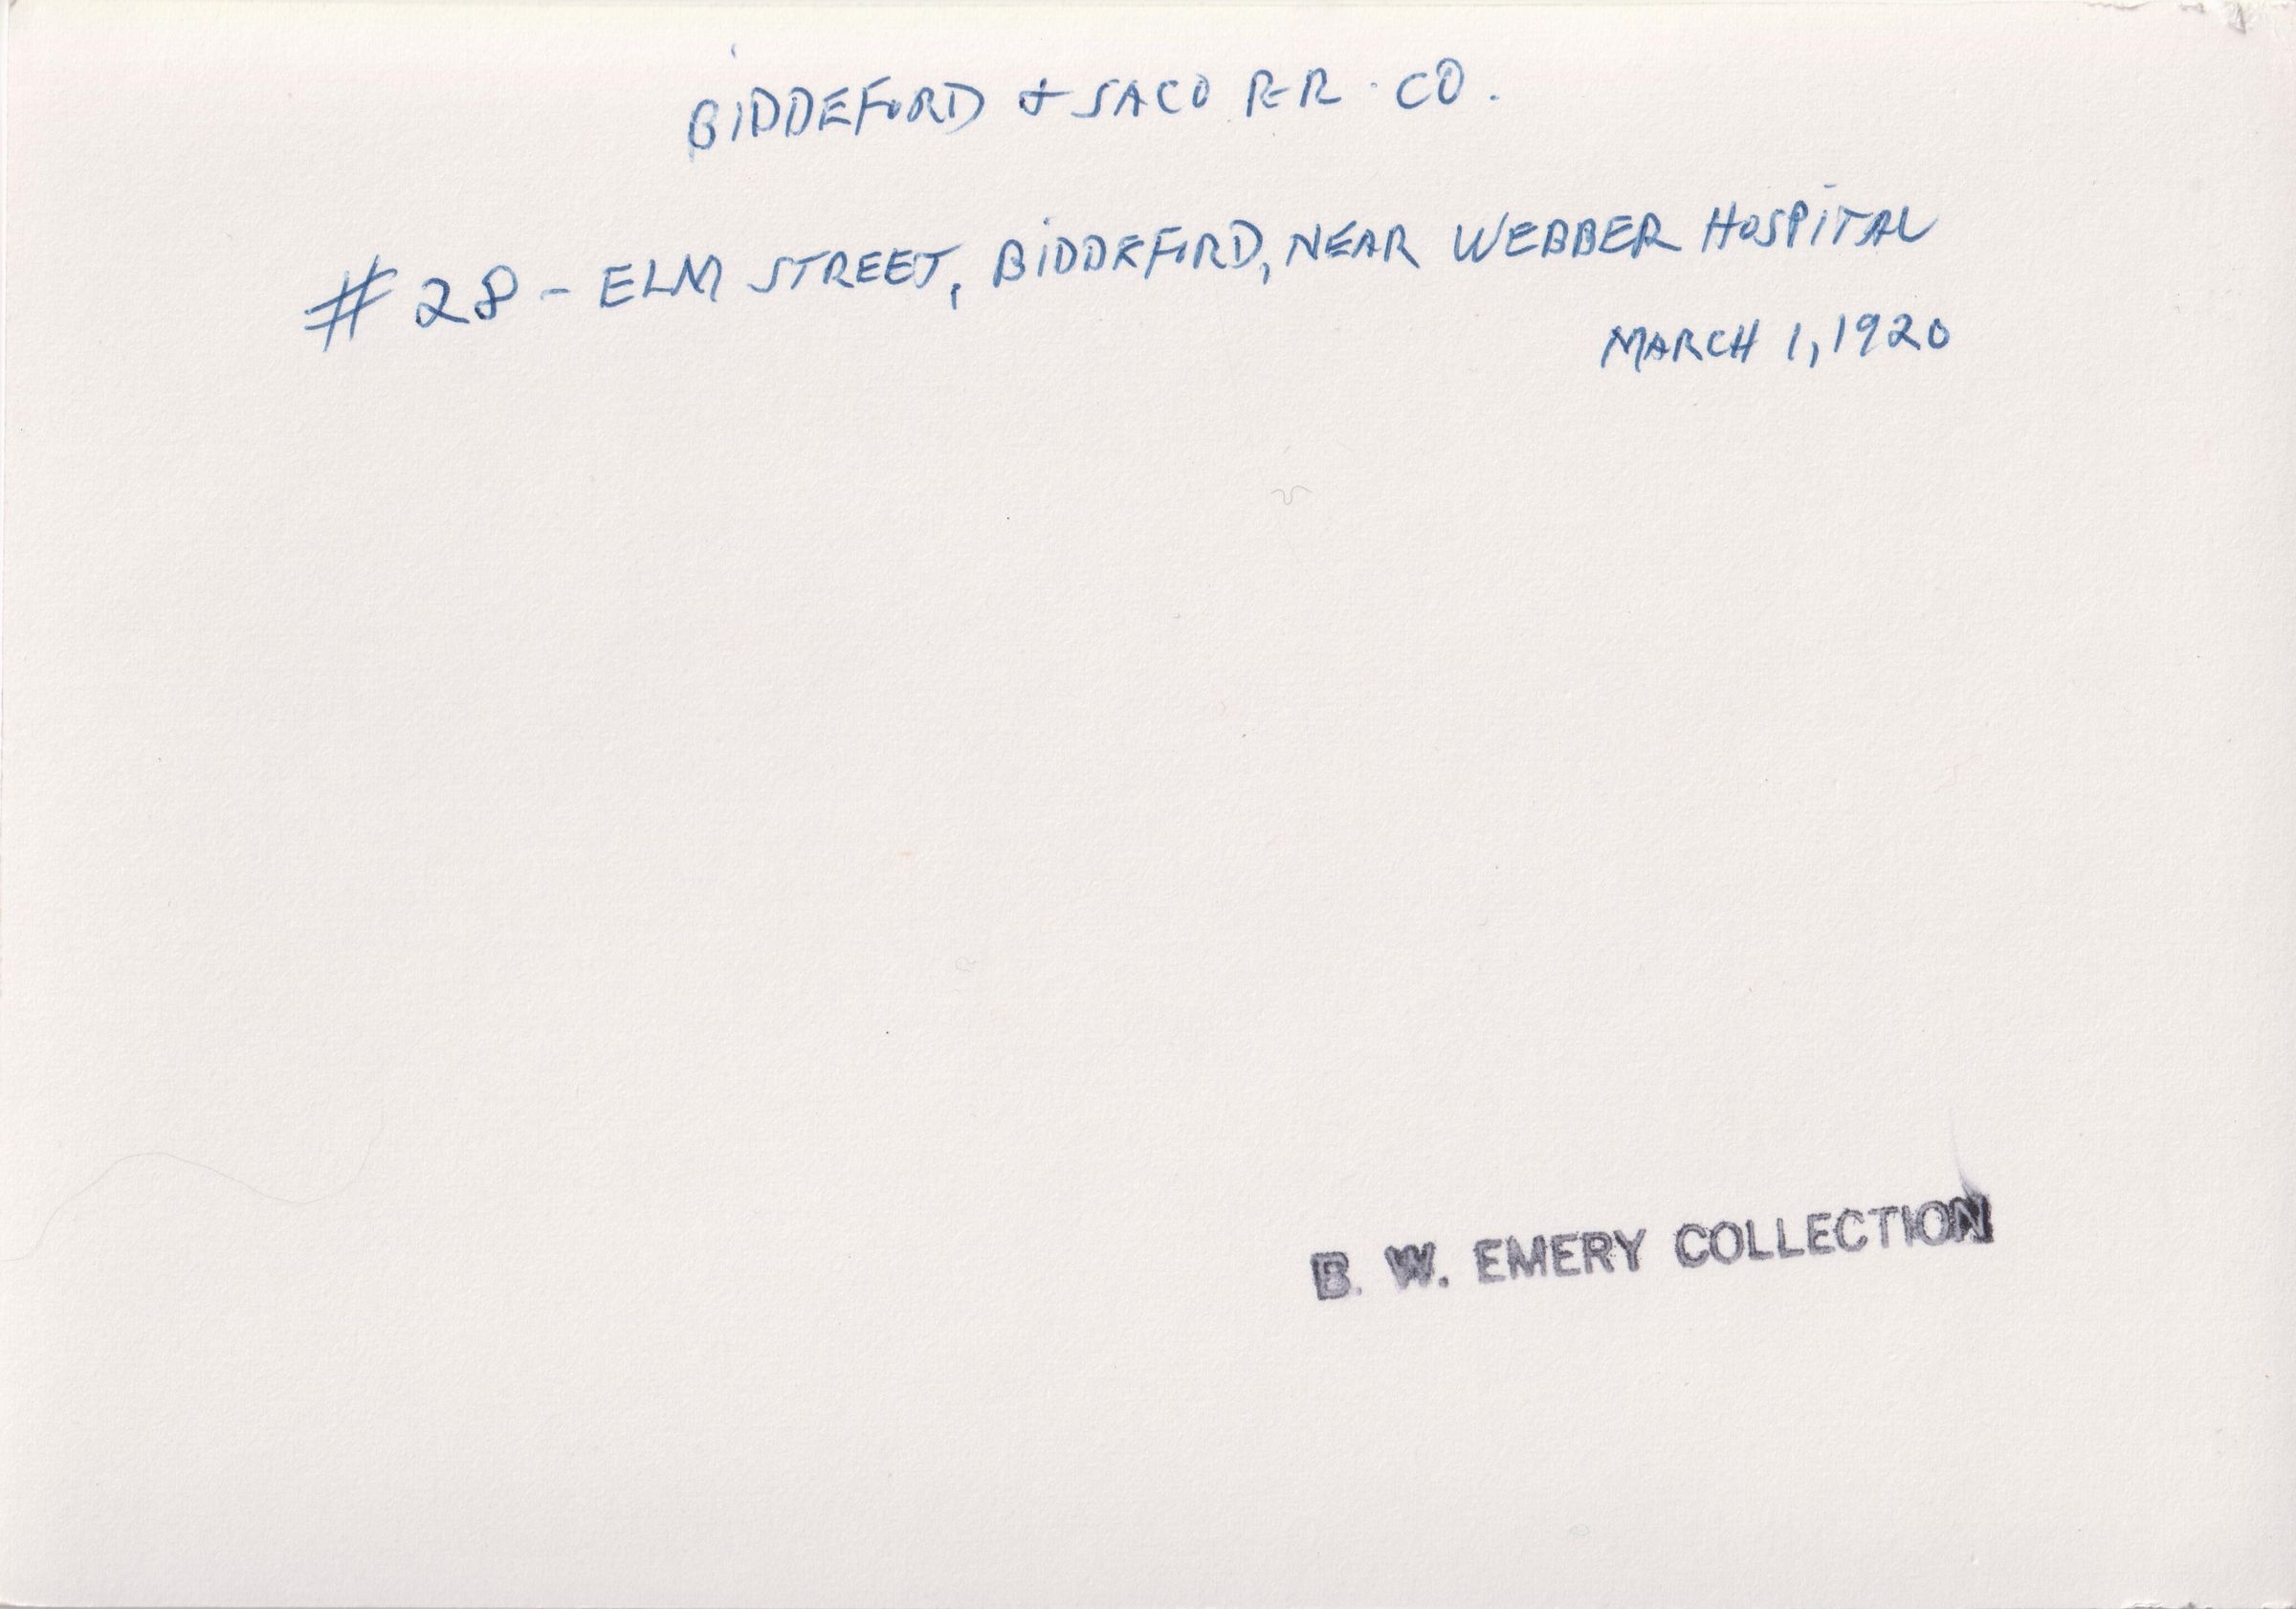 BIDDEFORD & SACO R-R. CO.
# 28 - ELM STREET, BIDDEFORD, NEAR WEBBER HOSPITAL
MARCH 1, 1920
B. W. EMERY COLLECTION